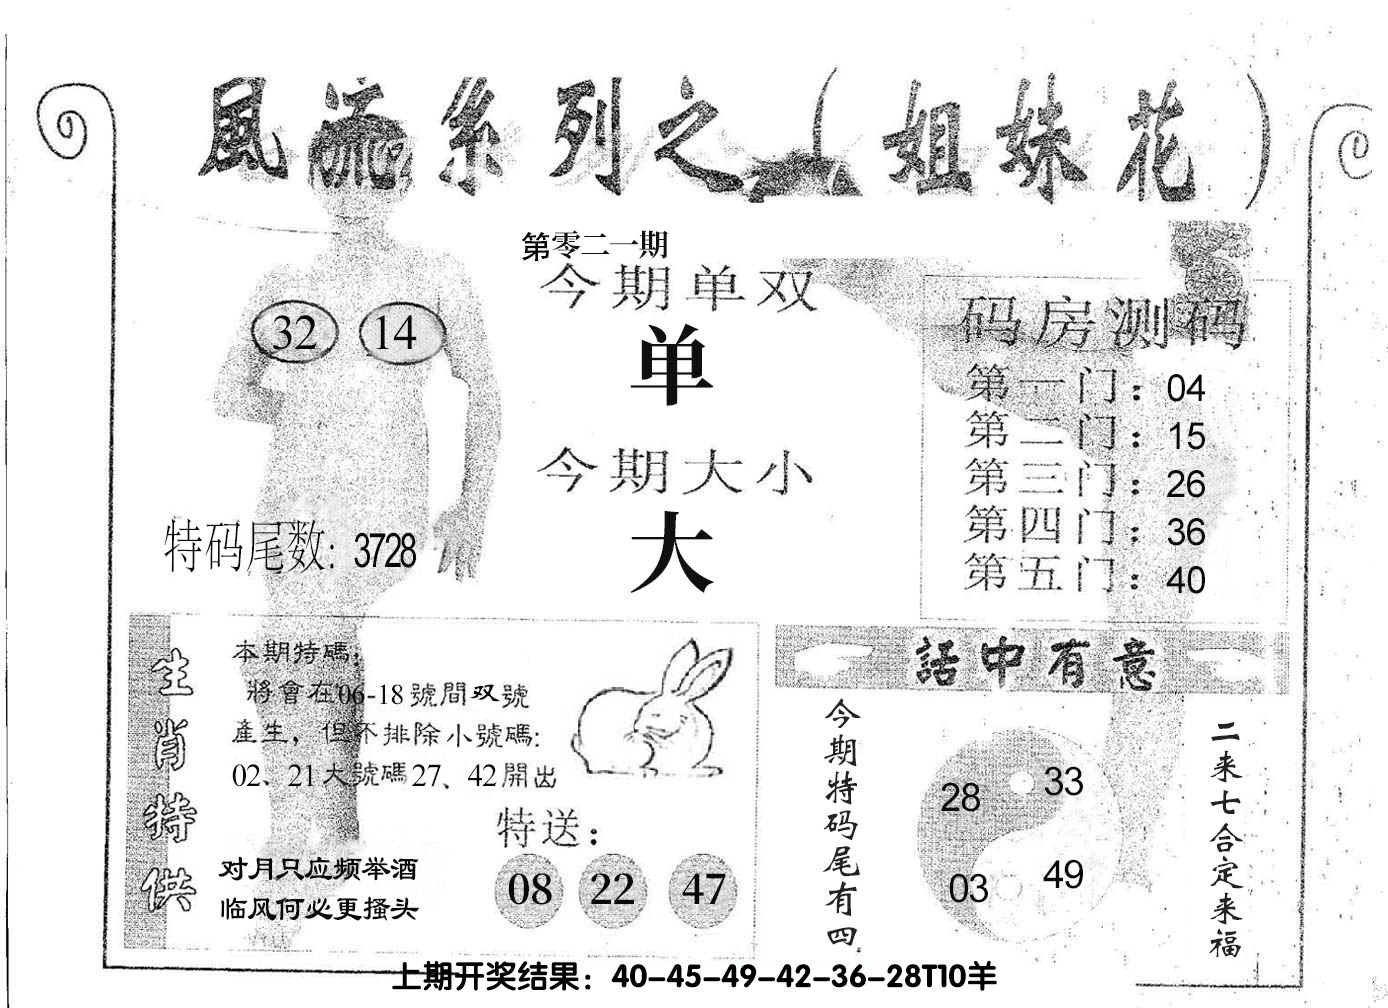 風流系列之（姐妹花）
第零二一期
今期单双
单
今期大小
大
32 14
特码尾数: 3728
码房测码
第一门：04
第二门：15
第三门：26
第四门：36
第五门：40
生肖特供
本期特碼：
將會在06-18號間双號
產生，但不排除小號碼:
02、21大號碼27、42開出
特送：
08 22 47
对月只应频举酒
临风何必更搔头
話中有意
今期特码尾有四
28 33
03 49
二来七合定来福
上期开奖结果：40-45-49-42-36-28T10羊